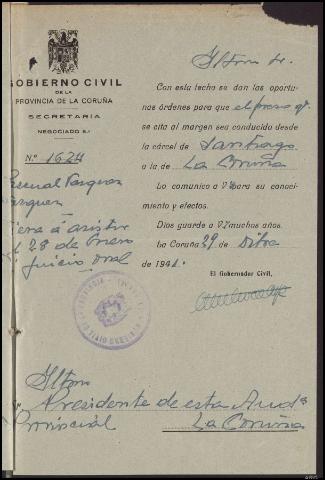 GOBIERNO CIVIL
DE LA
PROVINCIA DE LA CORUÑA
SECRETARIA
NEGOCIADO 5.º
N.º 1624
Vazquez
a asistir
28 de Enero
juicio oral
Iltmo Sr.
Con esta fecha se dan las oportu-
nas órdenes para que el preso qe.
se cita al margen sea conducido desde
la cárcel de Santiago
a la de La Coruña
Lo comunico a V I para su conoci-
miento y efectos.
Dios guarde a V I muchos años.
La Coruña 29 de Dibre
de 1941.
El Gobernador Civil,
Iltmo
Presidente de esta Auda
Provincial La Coruña